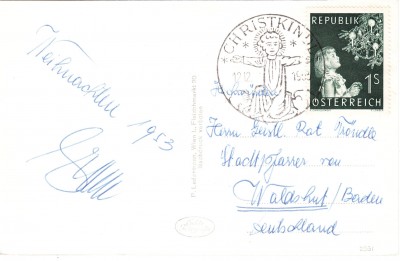 Weihnachten 1953
CHRISTKINDL
12.12.
REPUBLIK
1S
ÖSTERREICH
Herrn Geistl. Rat Tröndle
Stadtpfarrer von
Waldshut/Baden
Deutschland